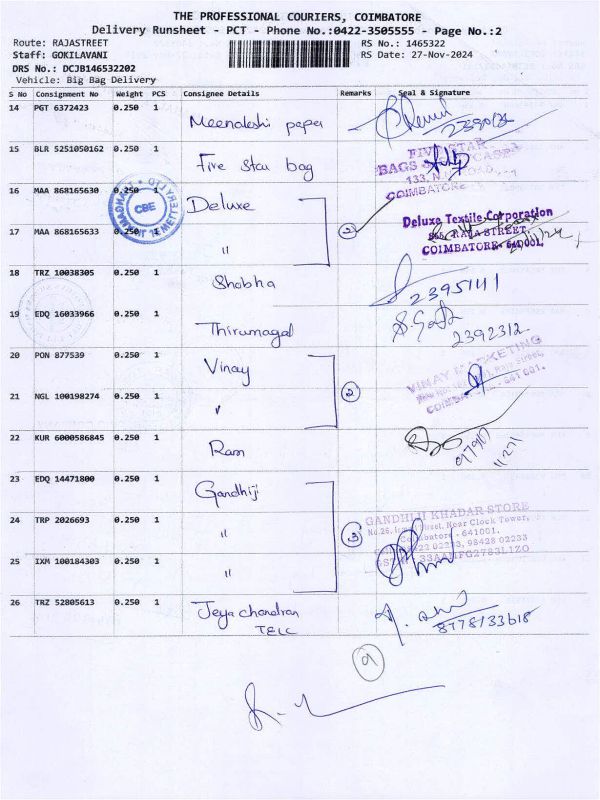 THE PROFESSIONAL COURIERS, COIMBATORE
Delivery Runsheet - PCT - Phone No.:0422-3505555 - Page No.:2
Route: RAJASTREET RS No.: 1465322
Staff: GOKILAVANI RS Date: 27-Nov-2024
DRS No.: DCJB146532202
Vehicle: Big Bag Delivery
S No Consignment No Weight PCS Consignee Details Remarks Seal & Signature
14 PGT 6372423 0.250 1 Meenakshi paper
15 BLR 5251050162 0.250 1 Five star bag
FIVE STAR
BAGS
133, N.
COIMBATORE
16 MAA 868165630 0.250 1 Deluxe 2
CBE
17 MAA 868165633 0.250 1 "
Deluxe Textile Corporation
RAJA STREET
COIMBATORE - 641001.
18 TRZ 10038305 0.250 1 Shobha 2395141
19 EDQ 16033966 0.250 1 Thirumagal 2392312
20 PON 877539 0.250 1 Vinay 2
21 NGL 100198274 0.250 1 "
VINAY MARKETING
22 KUR 6000586845 0.250 1 Ram
23 EDQ 14471800 0.250 1 Gandhiji 3
24 TRP 2026693 0.250 1 "
25 IXM 100184303 0.250 1 "
GANDHIJI KHADAR STORE
Street, Near Clock Tower,
Coimbatore - 641001.
98428 02233
26 TRZ 52805613 0.250 1 Jeya chandran
TELC
8778133618
9